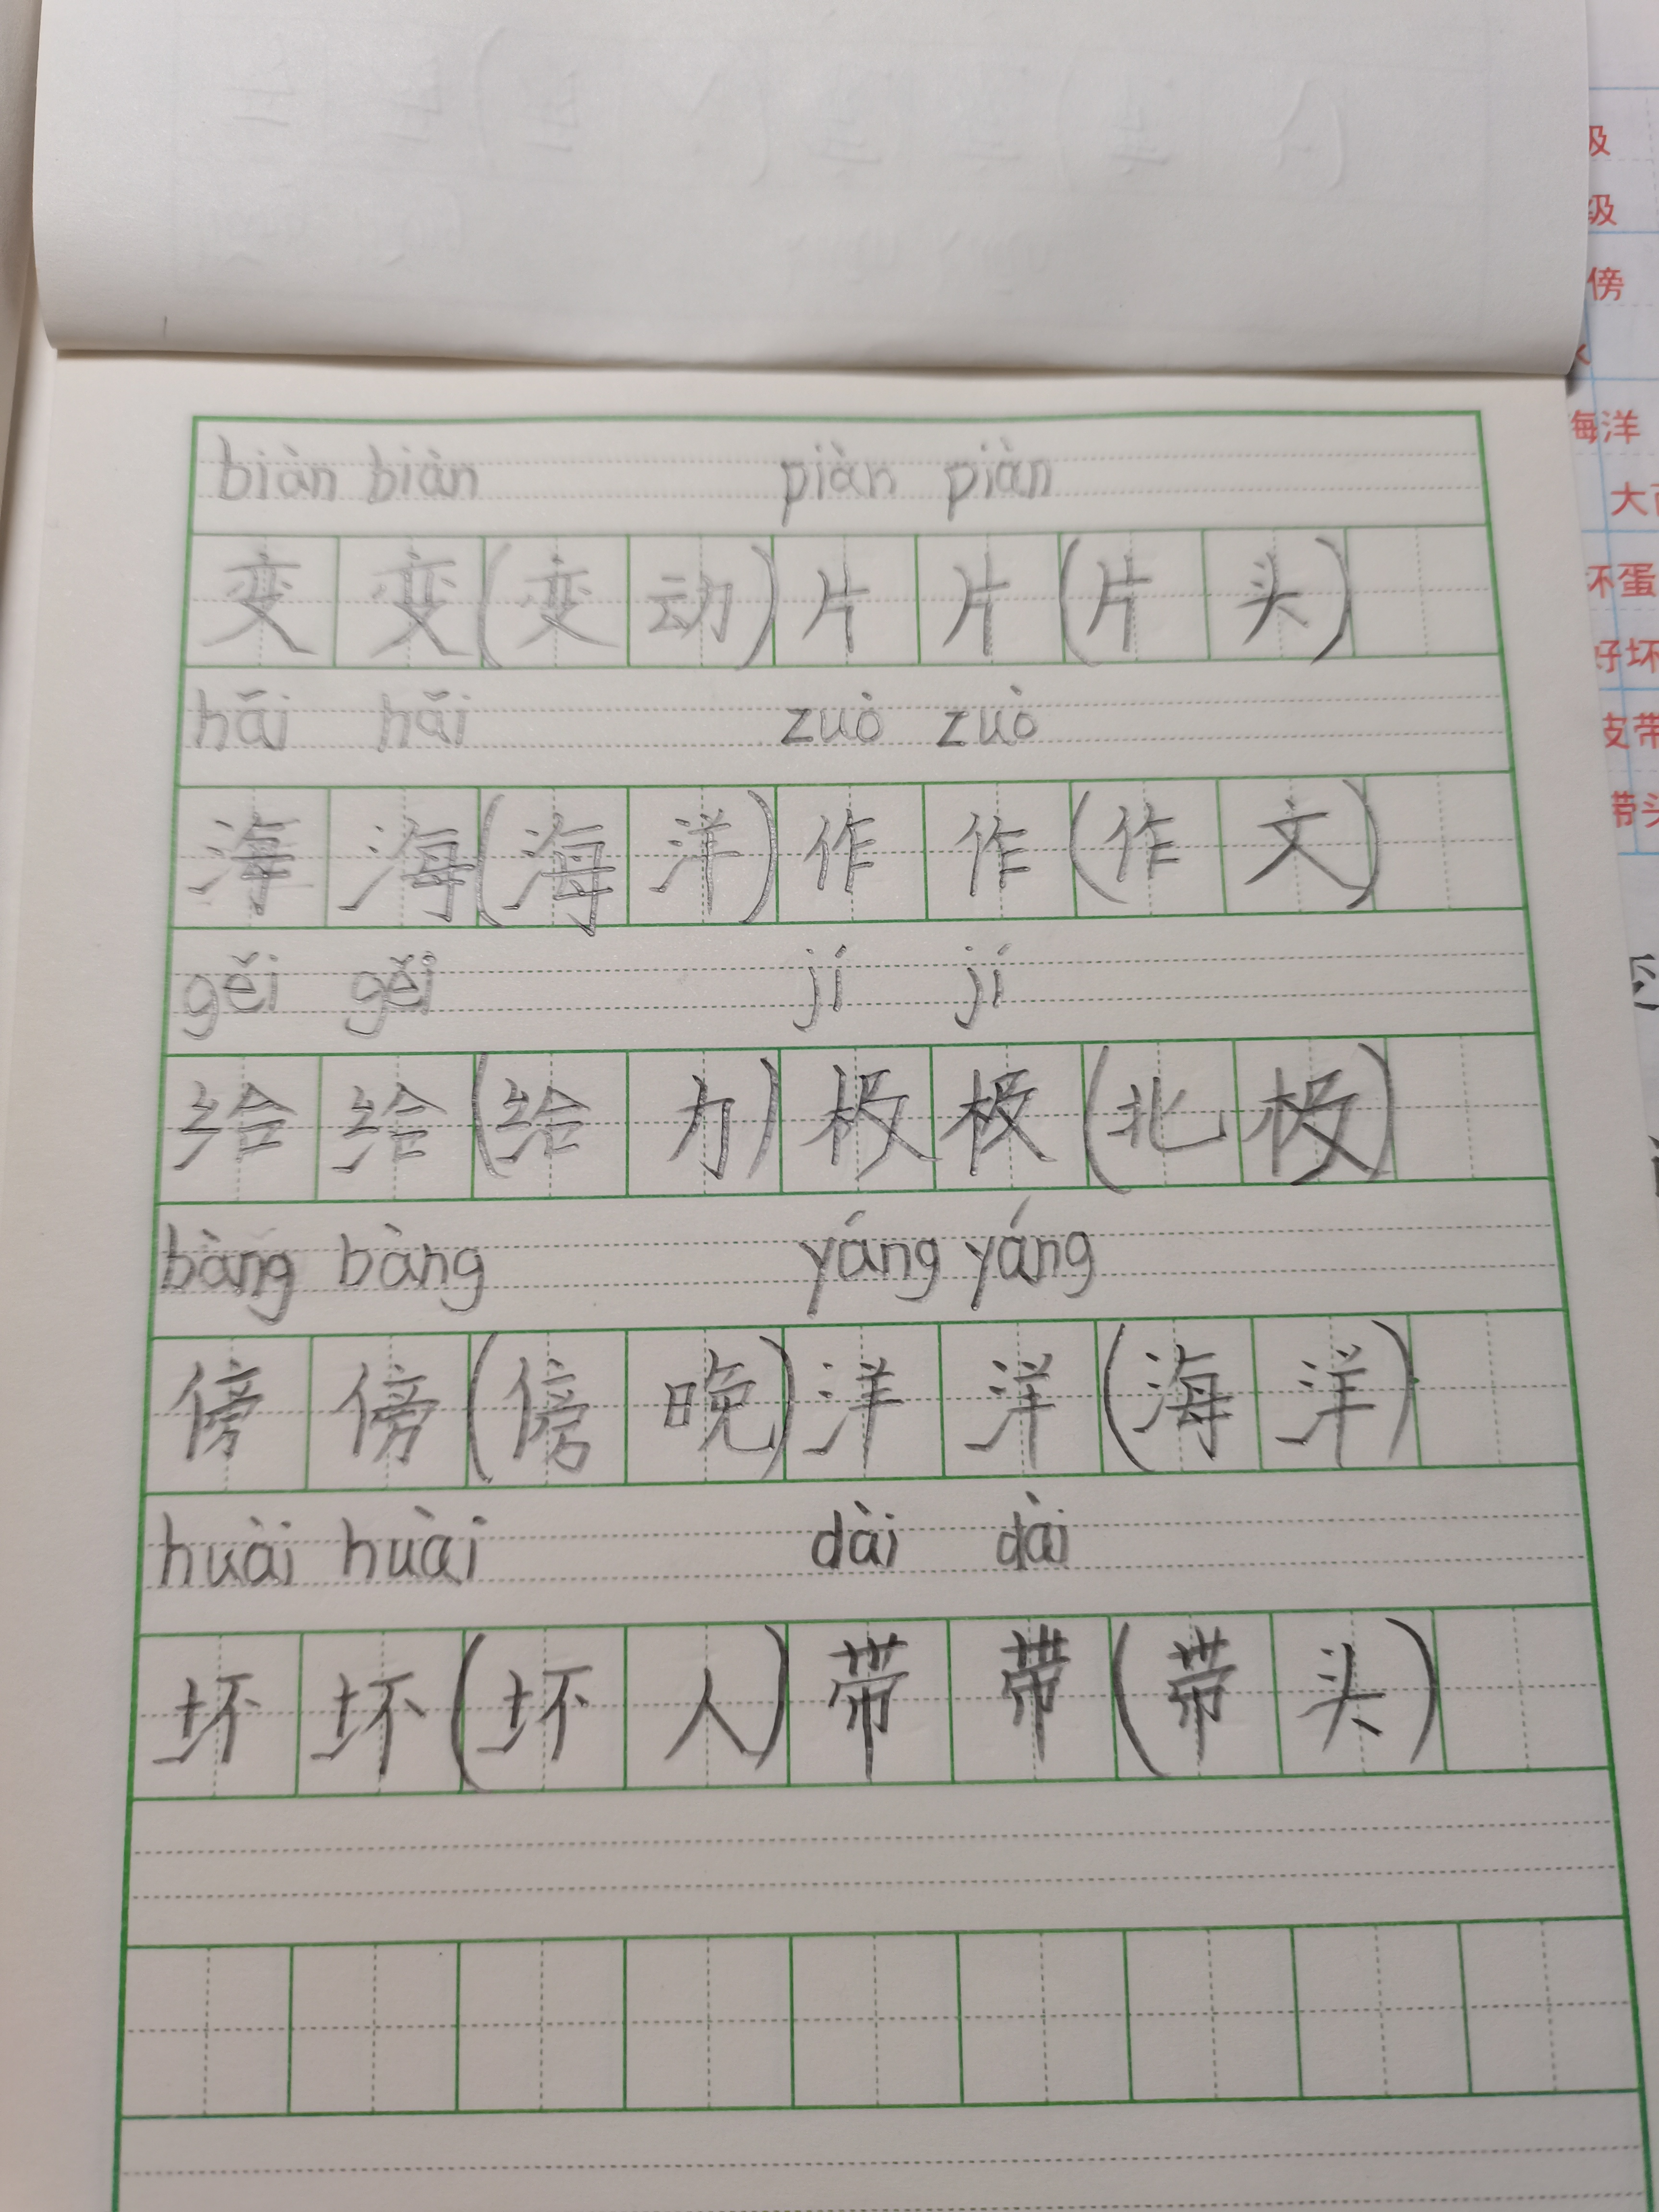 biàn biàn piàn piàn
变变(变动)片片(片头)
hǎi hǎi zuò zuò
海海(海洋)作作(作文)
gěi gěi jí jí
给给(给力)极极(北极)
bàng bàng yáng yáng
傍傍(傍晚)洋洋(海洋)
huài huài dài dài
坏坏(坏人)带带(带头)
级
级
傍
海洋
大
坏蛋
好坏
皮带
带头